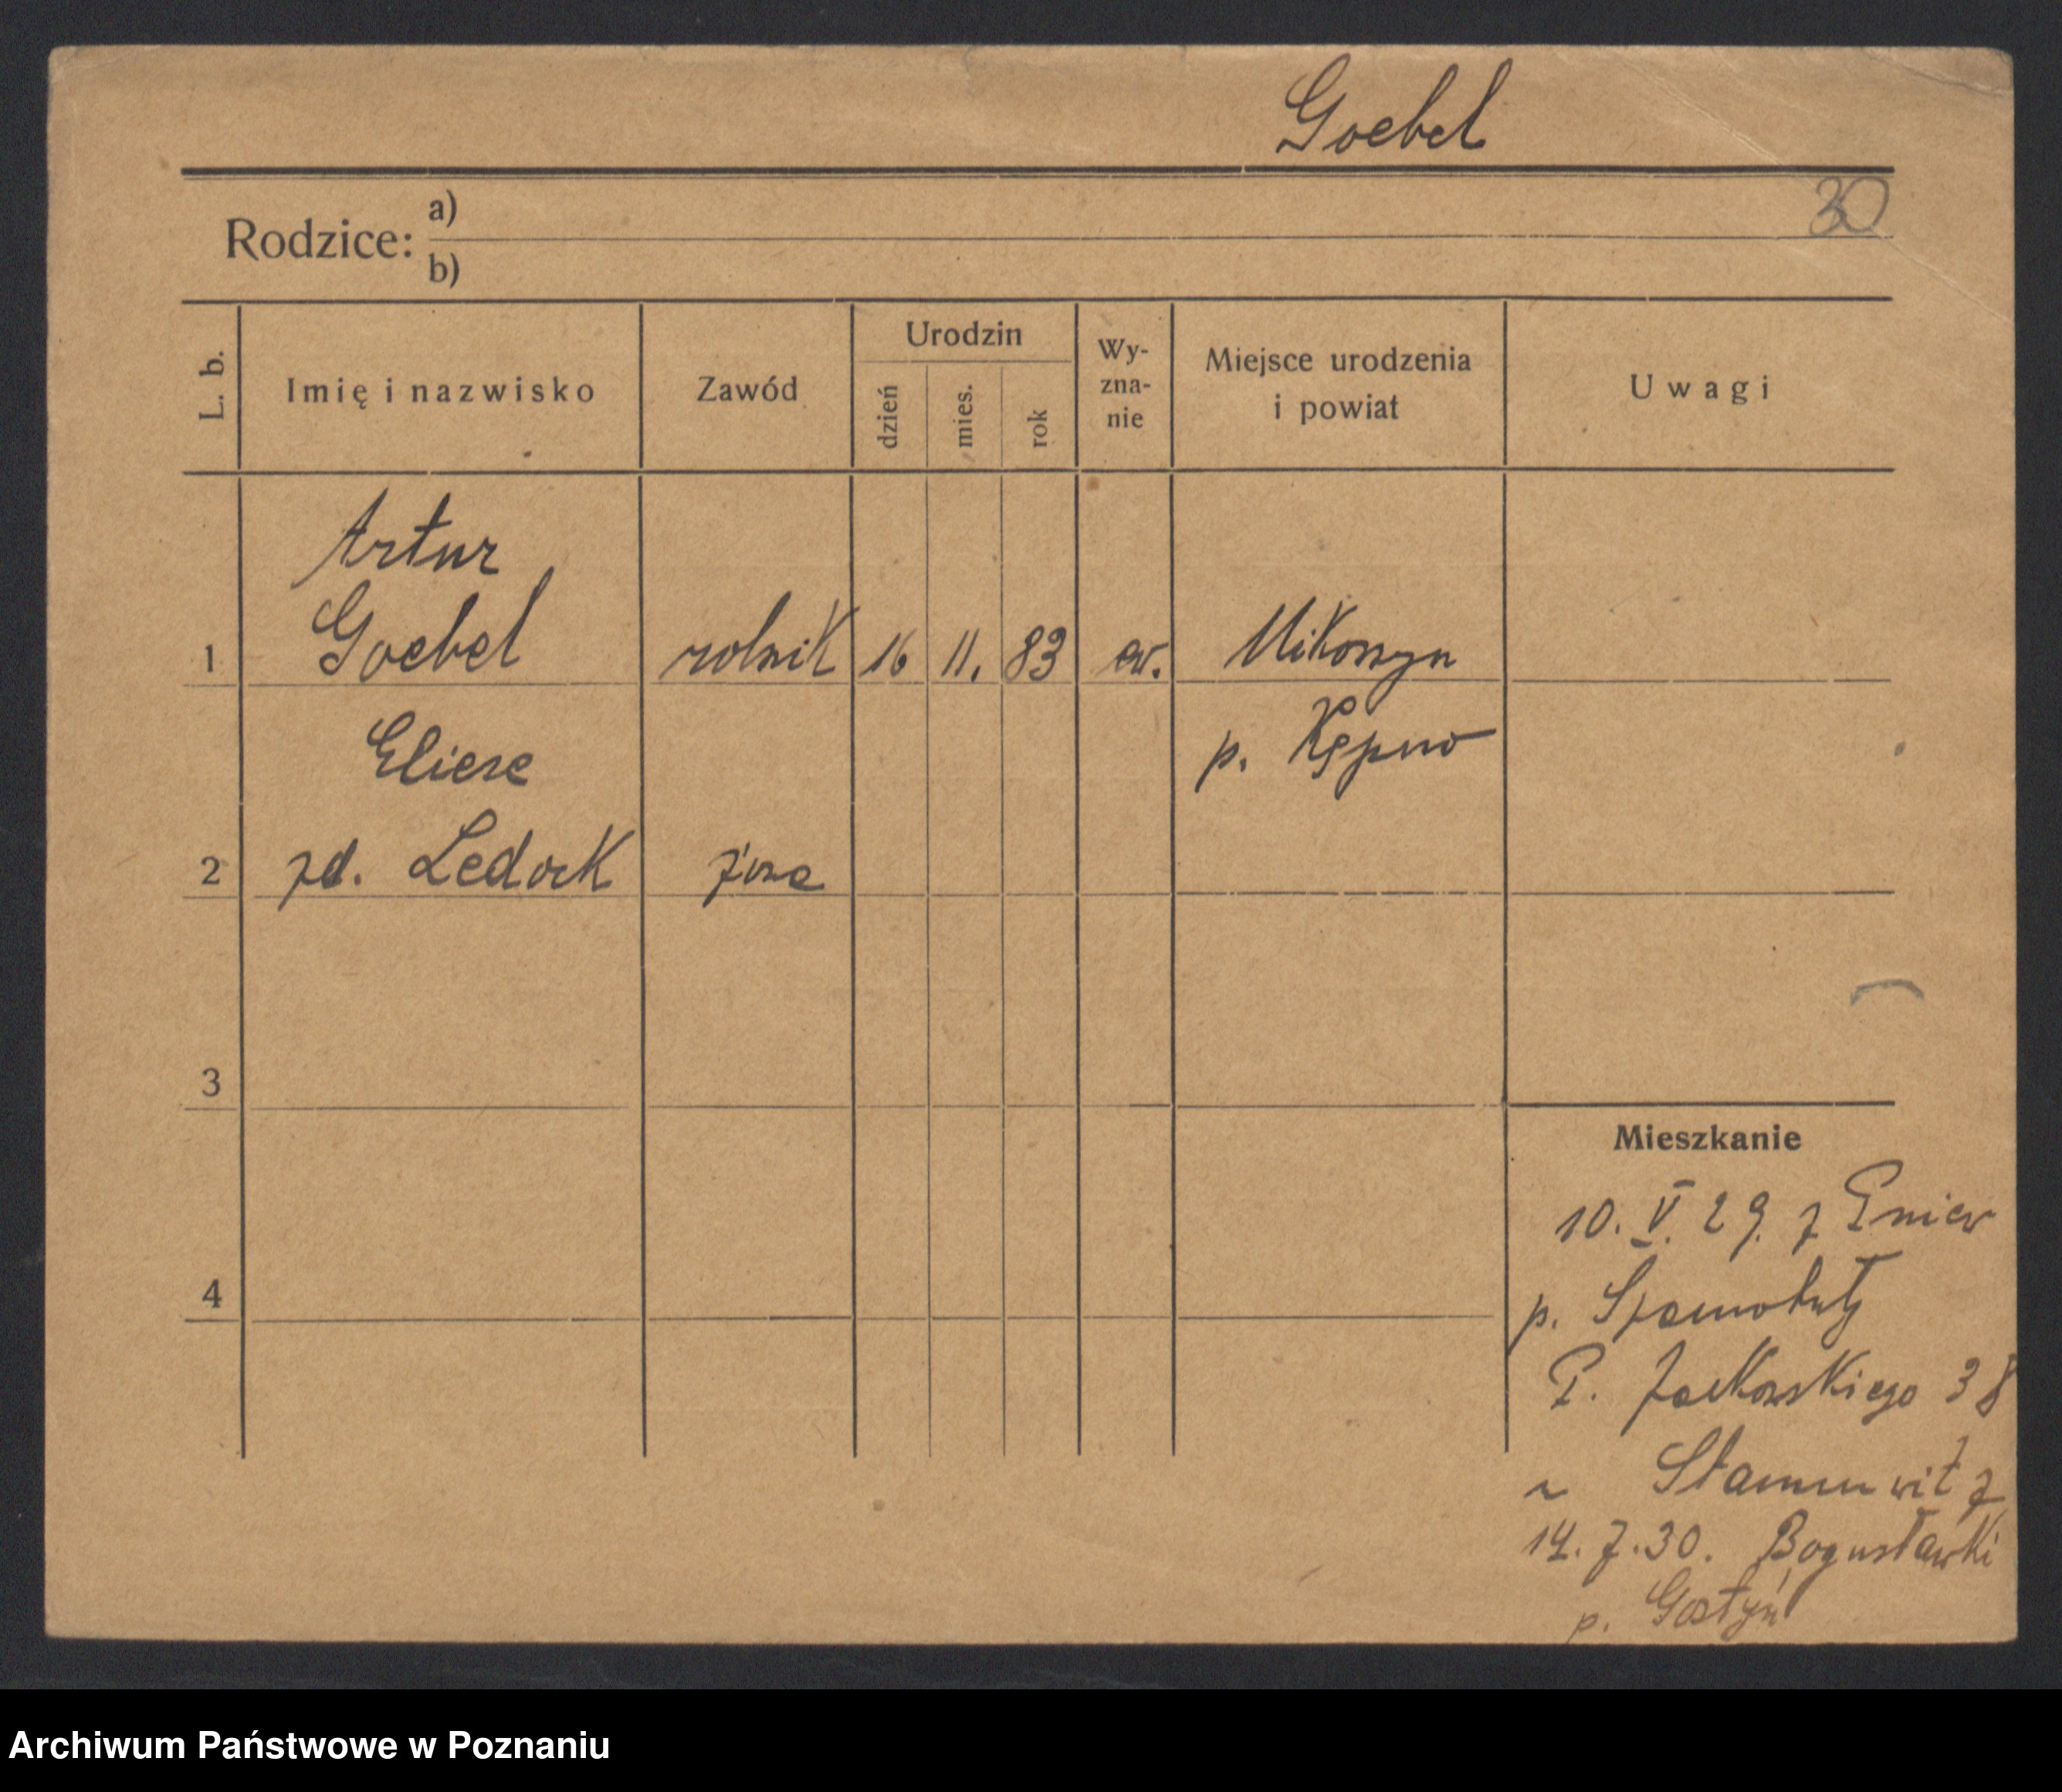 Goebel
30
Rodzice: a)
b)
L. b.
Imię i nazwisko
Zawód
Urodzin
dzień
mies.
rok
Wy-
zna-
nie
Miejsce urodzenia
i powiat
Uwagi
Artur
1 Goebel rolnik 16 11. 83 ew. Mikorzyn
Eliese p. Kępno
2 zd. Ledock żona
3
4
Mieszkanie
10. V. 29. z Gniew
p. Szamotuły
P. Jackowskiego 38
u
14. 7. 30. Bogusławki
p. Gostyń
Archiwum Państwowe w Poznaniu